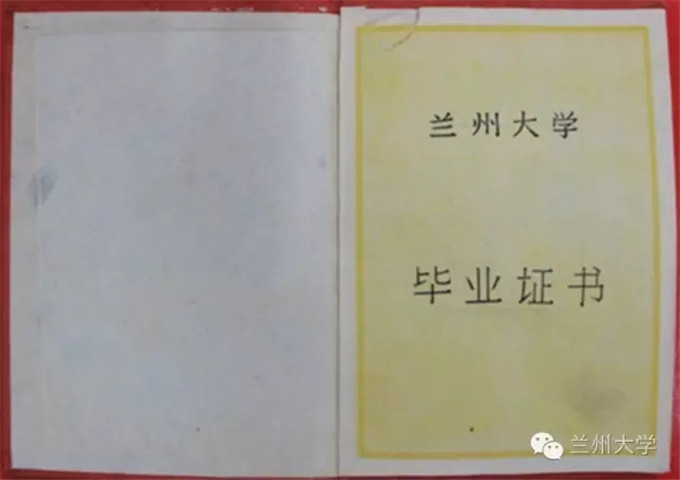 兰州大学
毕业证书
兰州大学